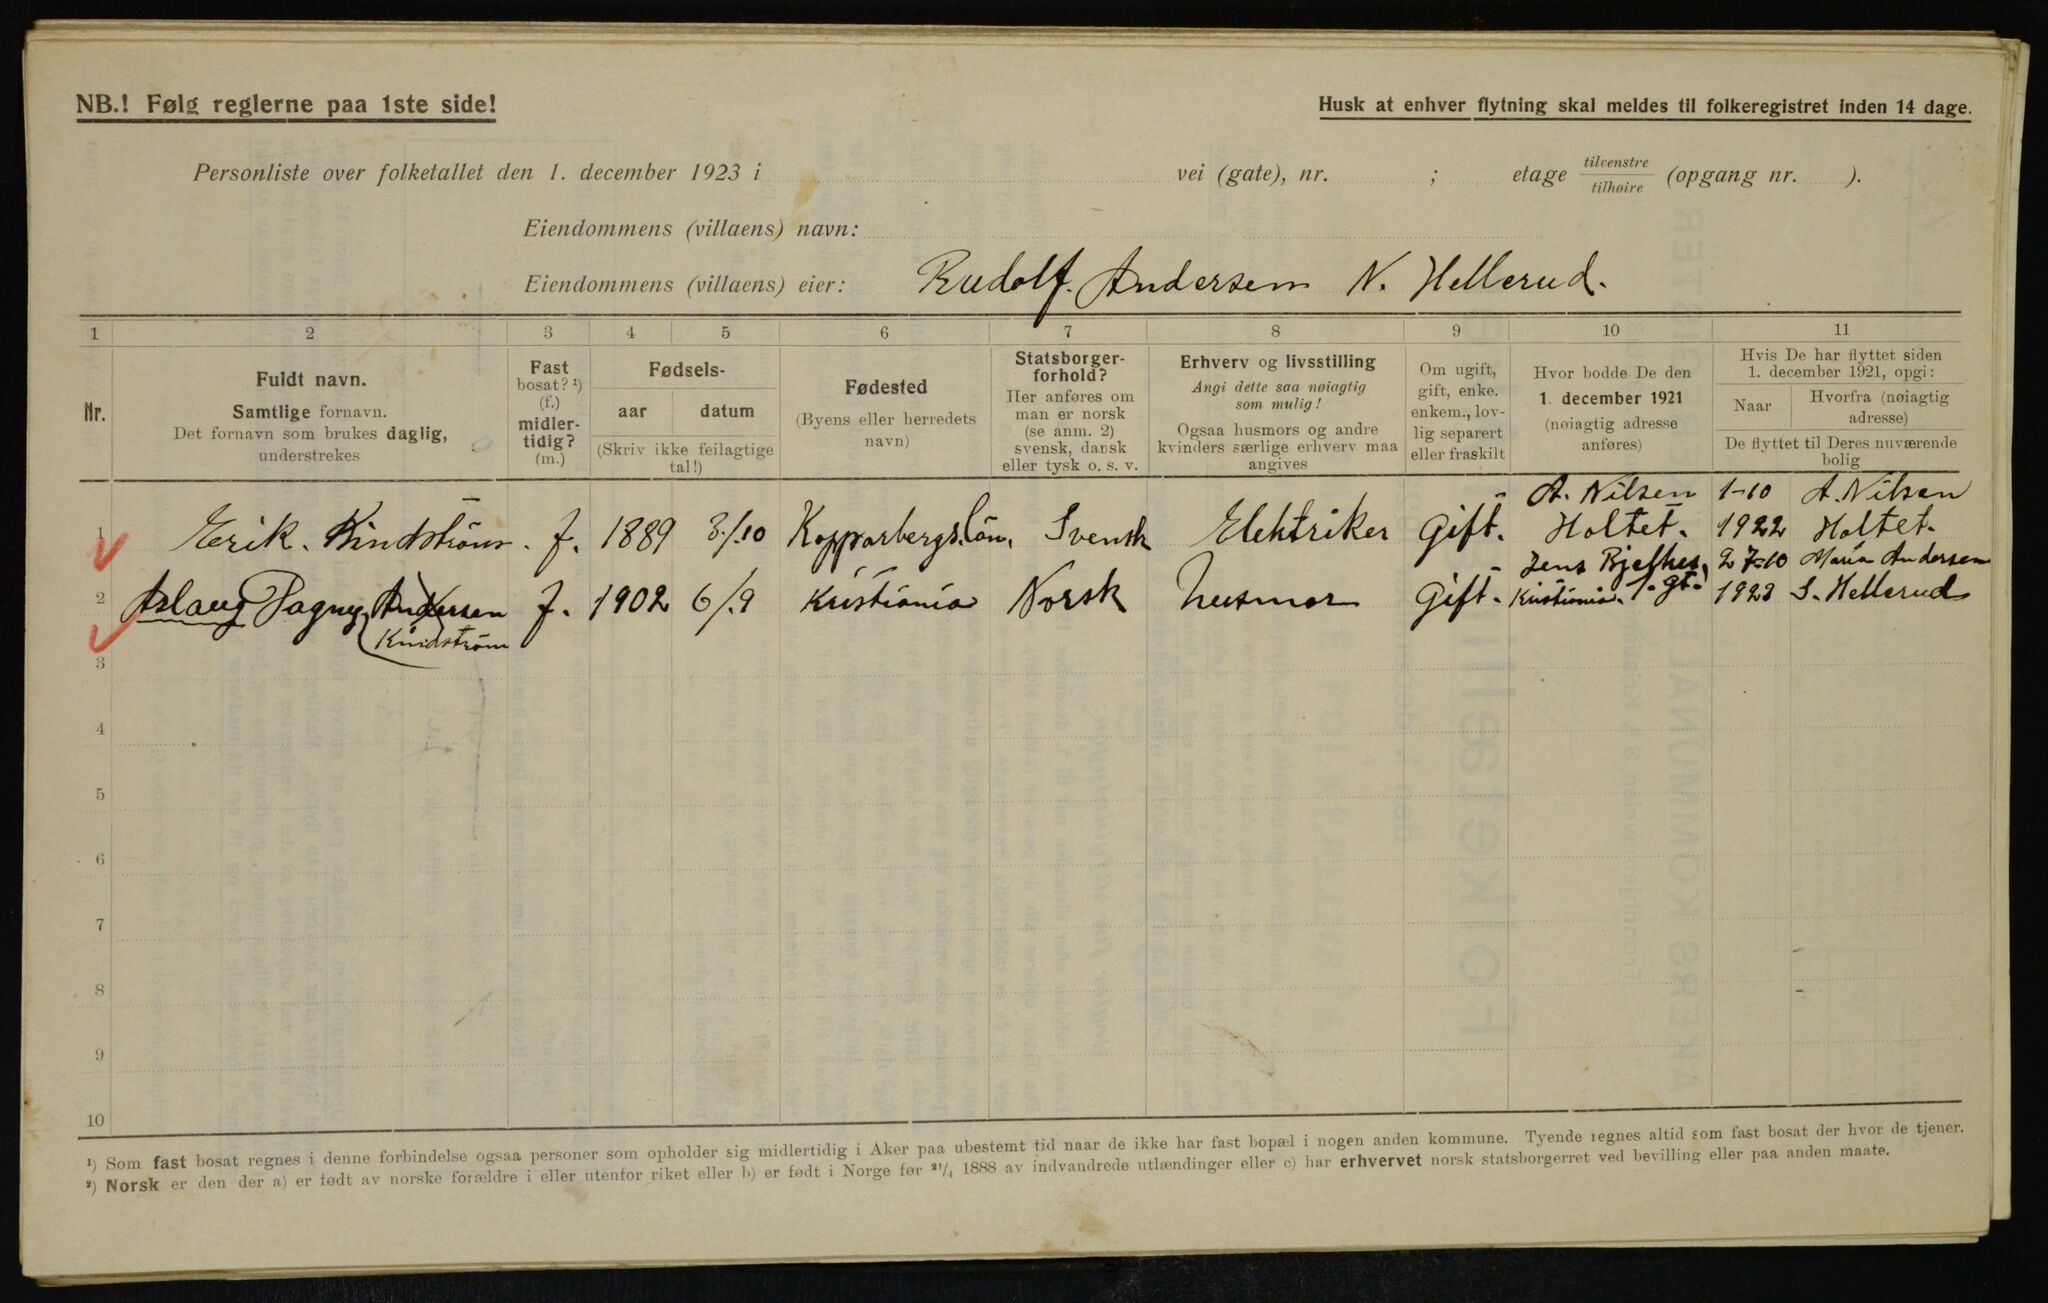 NB.! Følg reglerne paa 1ste side!
Husk at enhver flytning skal meldes til folkeregistret inden 14 dage.
Personliste over folketallet den 1. december 1923 i vei (gate), nr. ; etage tilvenstre/tilhøire (opgang nr. ).
Eiendommens (villaens) navn:
Eiendommens (villaens) eier: Rudolf. Andersen N. Hellerud.
1 2 3 4 5 6 7 8 9 10 11
Nr.
Fuldt navn.
Samtlige fornavn.
Det fornavn som brukes daglig,
understrekes
Fast
bosat? ¹)
(f.)
midler-
tidig?
(m.)
Fødsels-
aar datum
(Skriv ikke feilagtige
tal!)
Fødested
(Byens eller herredets
navn)
Statsborger-
forhold?
Her anføres om
man er norsk
(se anm. 2)
svensk, dansk
eller tysk o. s. v.
Erhverv og livsstilling
Angi dette saa nøiagtig
som mulig!
Ogsaa husmors og andre
kvinders særlige erhverv maa
angives
Om ugift,
gift, enke.
enkem., lov-
lig separert
eller fraskilt
Hvor bodde De den
1. december 1921
(nøiagtig adresse
anføres)
Hvis De har flyttet siden
1. december 1921, opgi:
Naar
Hvorfra (nøiagtig
adresse)
De flyttet til Deres nuværende
bolig
A. Nilsen 1-10 A. Nilsen
1 Erik. Kindström. f. 1889 3/10 Kopparbergs.län. Svensk Elektriker Gift. Holtet. 1922 Holtet.
Jens Bjelkes 27-10 Maria Andersen
2 Aslaug Dagny Andersen f. 1902 6/9 Kristiania Norsk husmor Gift. Kristiania. gt. 1923 S. Hellerud
Kindström
3
4
5
6
7
8
9
10
¹) Som fast bosat regnes i denne forbindelse ogsaa personer som opholder sig midlertidig i Aker paa ubestemt tid naar de ikke har fast bopæl i nogen anden kommune. Tyende regnes altid som fast bosat der hvor de tjener.
²) Norsk er den der a) er født av norske forældre i eller utenfor riket eller b) er født i Norge før ²¹/₄ 1888 av indvandrede utlændinger eller c) har erhvervet norsk statsborgerret ved bevilling eller paa anden maate.